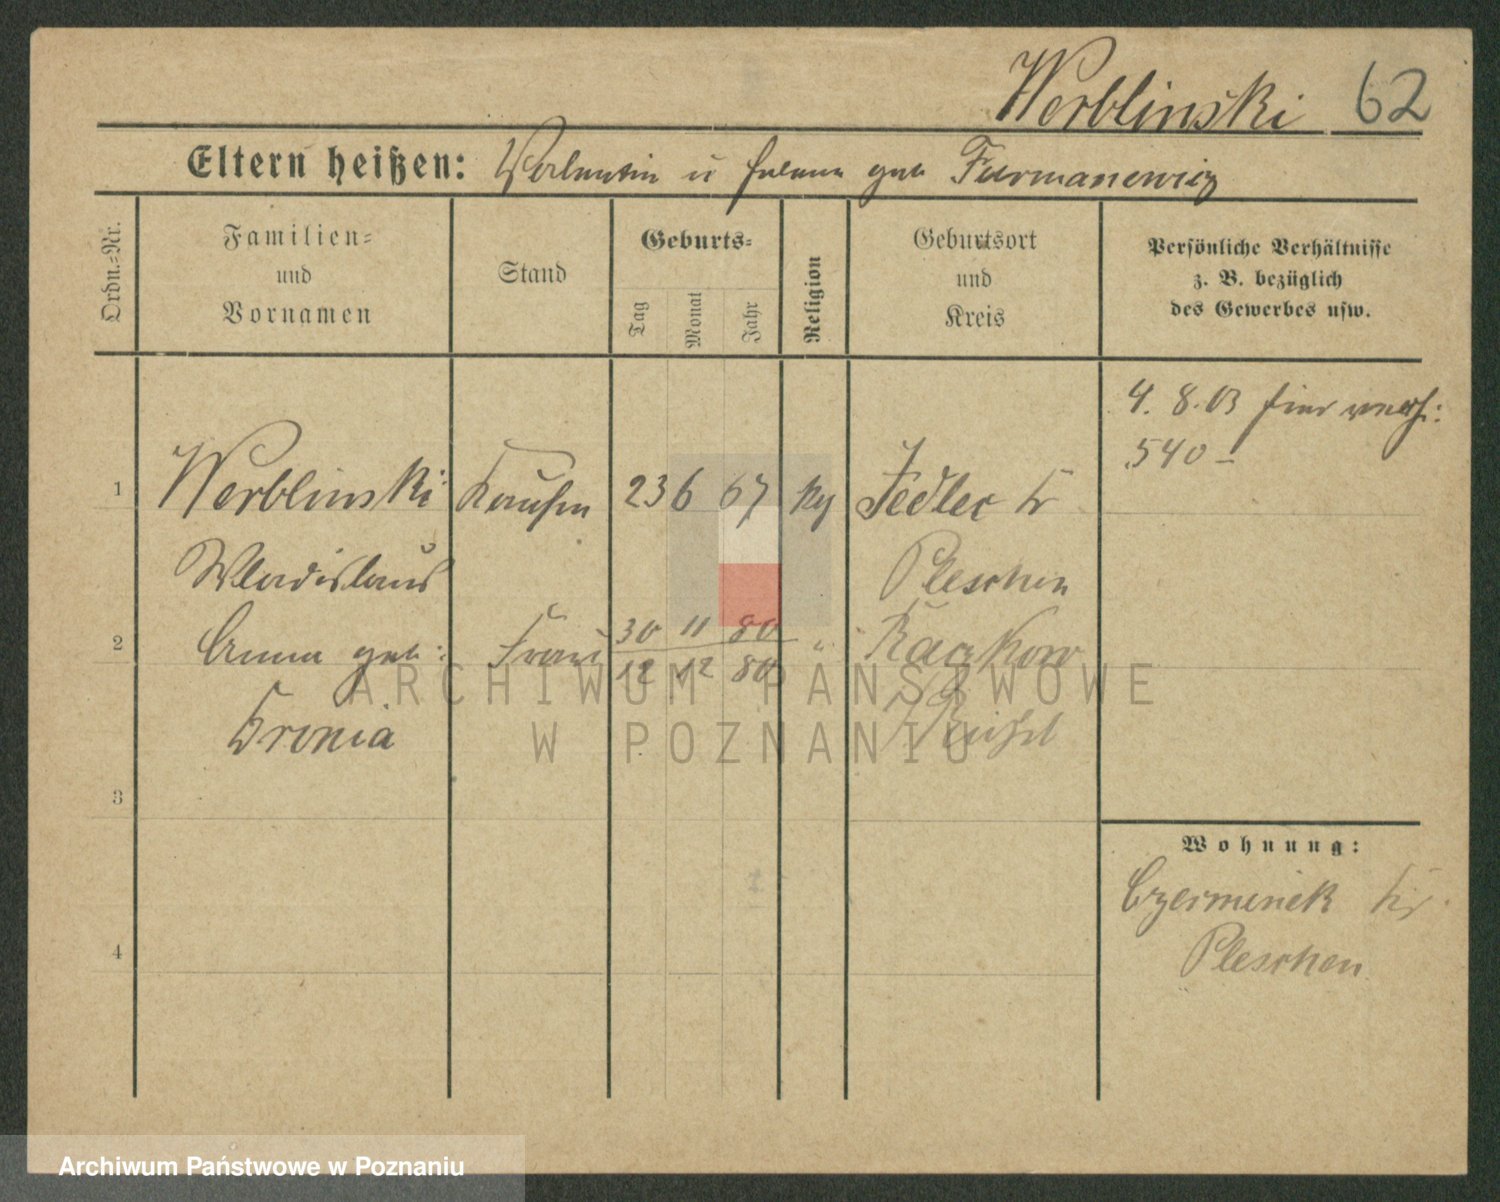 Werblinski 62
Eltern heißen: Valentin u Helena geb Furmanewicz
Ordn.-Nr.
Familien-
und
Vornamen
Stand
Geburts-
Tag
Monat
Jahr
Religion
Geburtsort
und
Kreis
Persönliche Verhältnisse
z. B. bezüglich
des Gewerbes usw.
4. 8. 03 hier
540 –
1 Werblinski Kaufm 23 6 67 Jedlec Kr
Wladislaus Pleschen
2 Anna geb: Frau 30 11 80 " Raczkow
12 12 80
Kronia
3
4
Wohnung:
Czerminek Kr.
Pleschen
ARCHIWUM PAŃSTWOWE
W POZNANIU
Archiwum Państwowe w Poznaniu